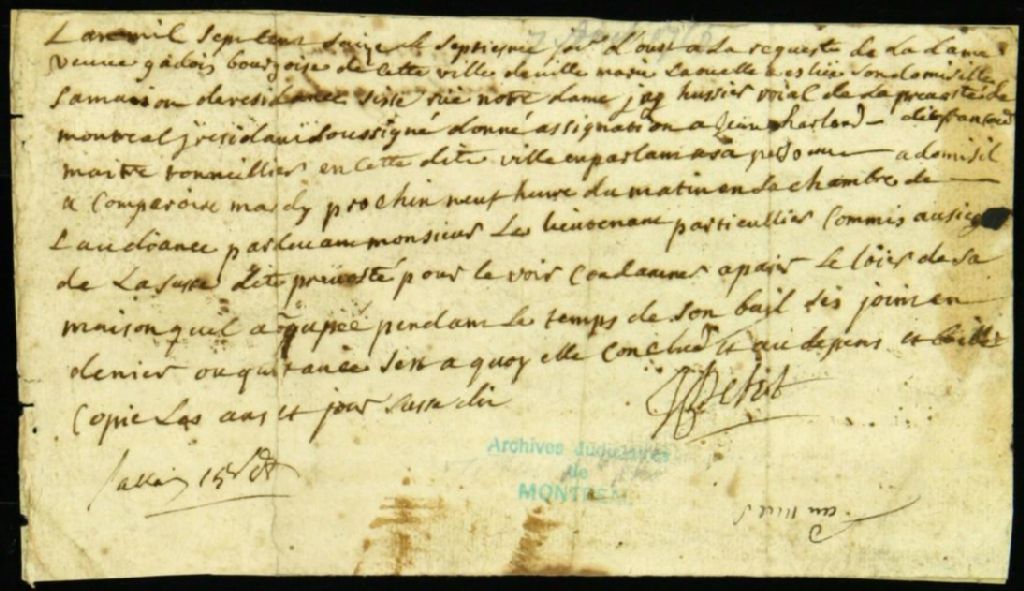 Lan mil sept cent saize le septiesme jor d'oust a la requeste de la dame
veuve gadois bourgoise de cette ville de ville marie Laquelle a eslie son domisille
sa maison de residance sisse rüe notre dame j huissier roial de la prevosté de
montreal y residant soussigné donné assignation a Jean charland dit francoeur
maitre tonnellier en cette dite ville en parlant a sa personne a domisil
a comparoire mardy prochin neuf heure du matin en la chambre de
Laudiance pardevant monsieur Le lieutenant particullier commis au siege
de La susse dite prevosté pour se voir condamner a paier le loier de sa
maison quil a ocupée pendant le temps de son bail ses joint en
denier ou quitance sest a quoy elle conclud et au depens et laissé
copie Les ans et jour susse dit
JPetit
15s
Archives Judiciaires
de
MONTREAL